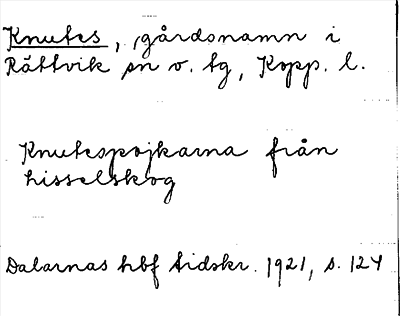 Knutes, gårdsnamn i
Rättvik sn o. tg, Kopp. l.
Knutespojkarna från
hisselskog
Dalarnas hbf tidskr. 1921, s. 124